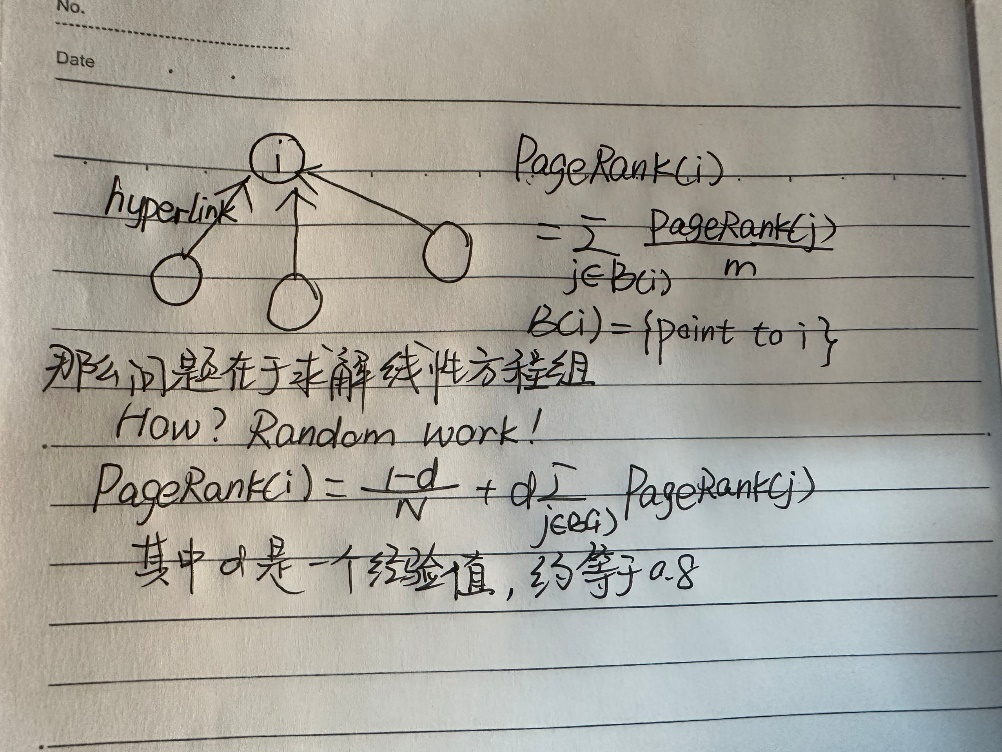 No.
Date
i
hyperlink
PageRank(i)
= Σ PageRank(j)
j∈B(i) m
B(i) = {point to i}
那么问题在于求解线性方程组
How? Random work!
PageRank(i) = 1-d/N + d Σ j∈B(i) PageRank(j)
其中d是一个经验值,约等于0.8